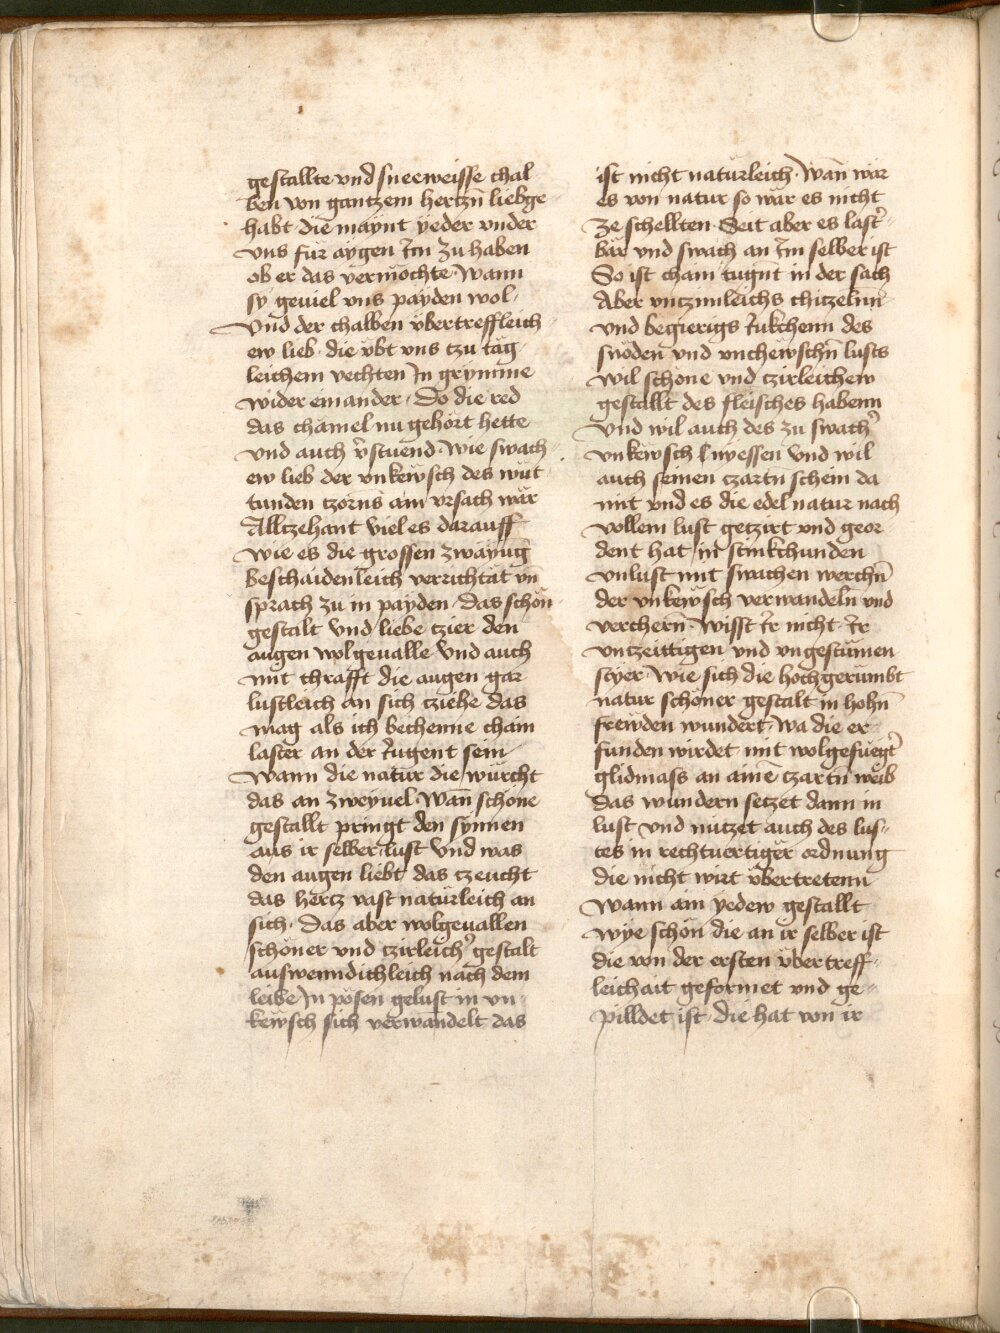 gestallte vnd sneeweisse chal
ben von gantzem hertzn̄ liebge
habt die maynt yeder vnder
vns für aygen Im zu haben
ob er das vermöchte Wann
sy geuiel vns payden wol
Vnd der chalben vbertreffleich
ew lieb die vbt vns tzu täg
leichem vechten In grymme
wider einander Do die red
das chamel nu gehört hette
vnd auch v̉stuend Wie swach
ew lieb der vnkewsch des wüt
tunden tzorns ain vrsach wär
Alltzehant viel es darauff
wie es die grossen zwayūg
beschaidenleich verrichtät vn̄
sprach zu in payden Das schön
gestalt vnd liebe tzier den
augen wolgeualle vnd auch
mit chrafft die augen gar
lustleich an sich tziehe das
mag als ich bechenne chain
laster an der Jugent sein
Wann die natur die würcht
das an zweyuel Wan̄ schöne
gestallt pringt den synnen
aus ir selber lust vnd was
den augen liebt das tzeucht
das hertz vast naturleich an
sich Das aber wolgeuallen
schöner vnd tzirleich̉ gestalt
auswenndichleich nach dem
leibe In pösen gelust in vn
kewsch sich verwandelt das
ist nicht naturleich Wan̄ wär
es von natur so wär es nicht
ze schellten Seit aber es last̉
bär vnd swach an Im selber ist
So ist chain tugnt in der sach
Aber vntzimleichs chitzelnn
vnd begierigs Jukchenn des
snöden vnd vnchewschn̄ lusts
wil schöne vnd tzirleichew
gestallt des fleisches habenn
Vnd wil auch des zu swach̉
vnkewsch nyessen Vnd wil
auch seinen tzartn̄ schein da
mit vnd es die edel natur nach
vollem lust getzirt vnd geor
dent hat in stinkchunden
vnlust mit swachen werchn̄
der vnkewsch verwandeln̄ vnd
verchern̄ Wisst Ir nicht Ir
vntzeittigen vnd vngestümen
styer Wie sich die hochgerümbt
natur schöner gestalt in hohn̄
frewden wundert Wa die er
funden wirdet mit wolgefuegt̉
glidmass an aine͞ tzartn̄ weib
das wundern setzet dann in
lust vnd nutzet auch des lus
tes in rechtuertiger ordnung
die nicht wirt vbertretenn
Wann ain yedew gestallt
wye schön die an ir selber ist
die von der ersten vbertreff
leichait geformet vnd ge
pilldet ist die hat von ir